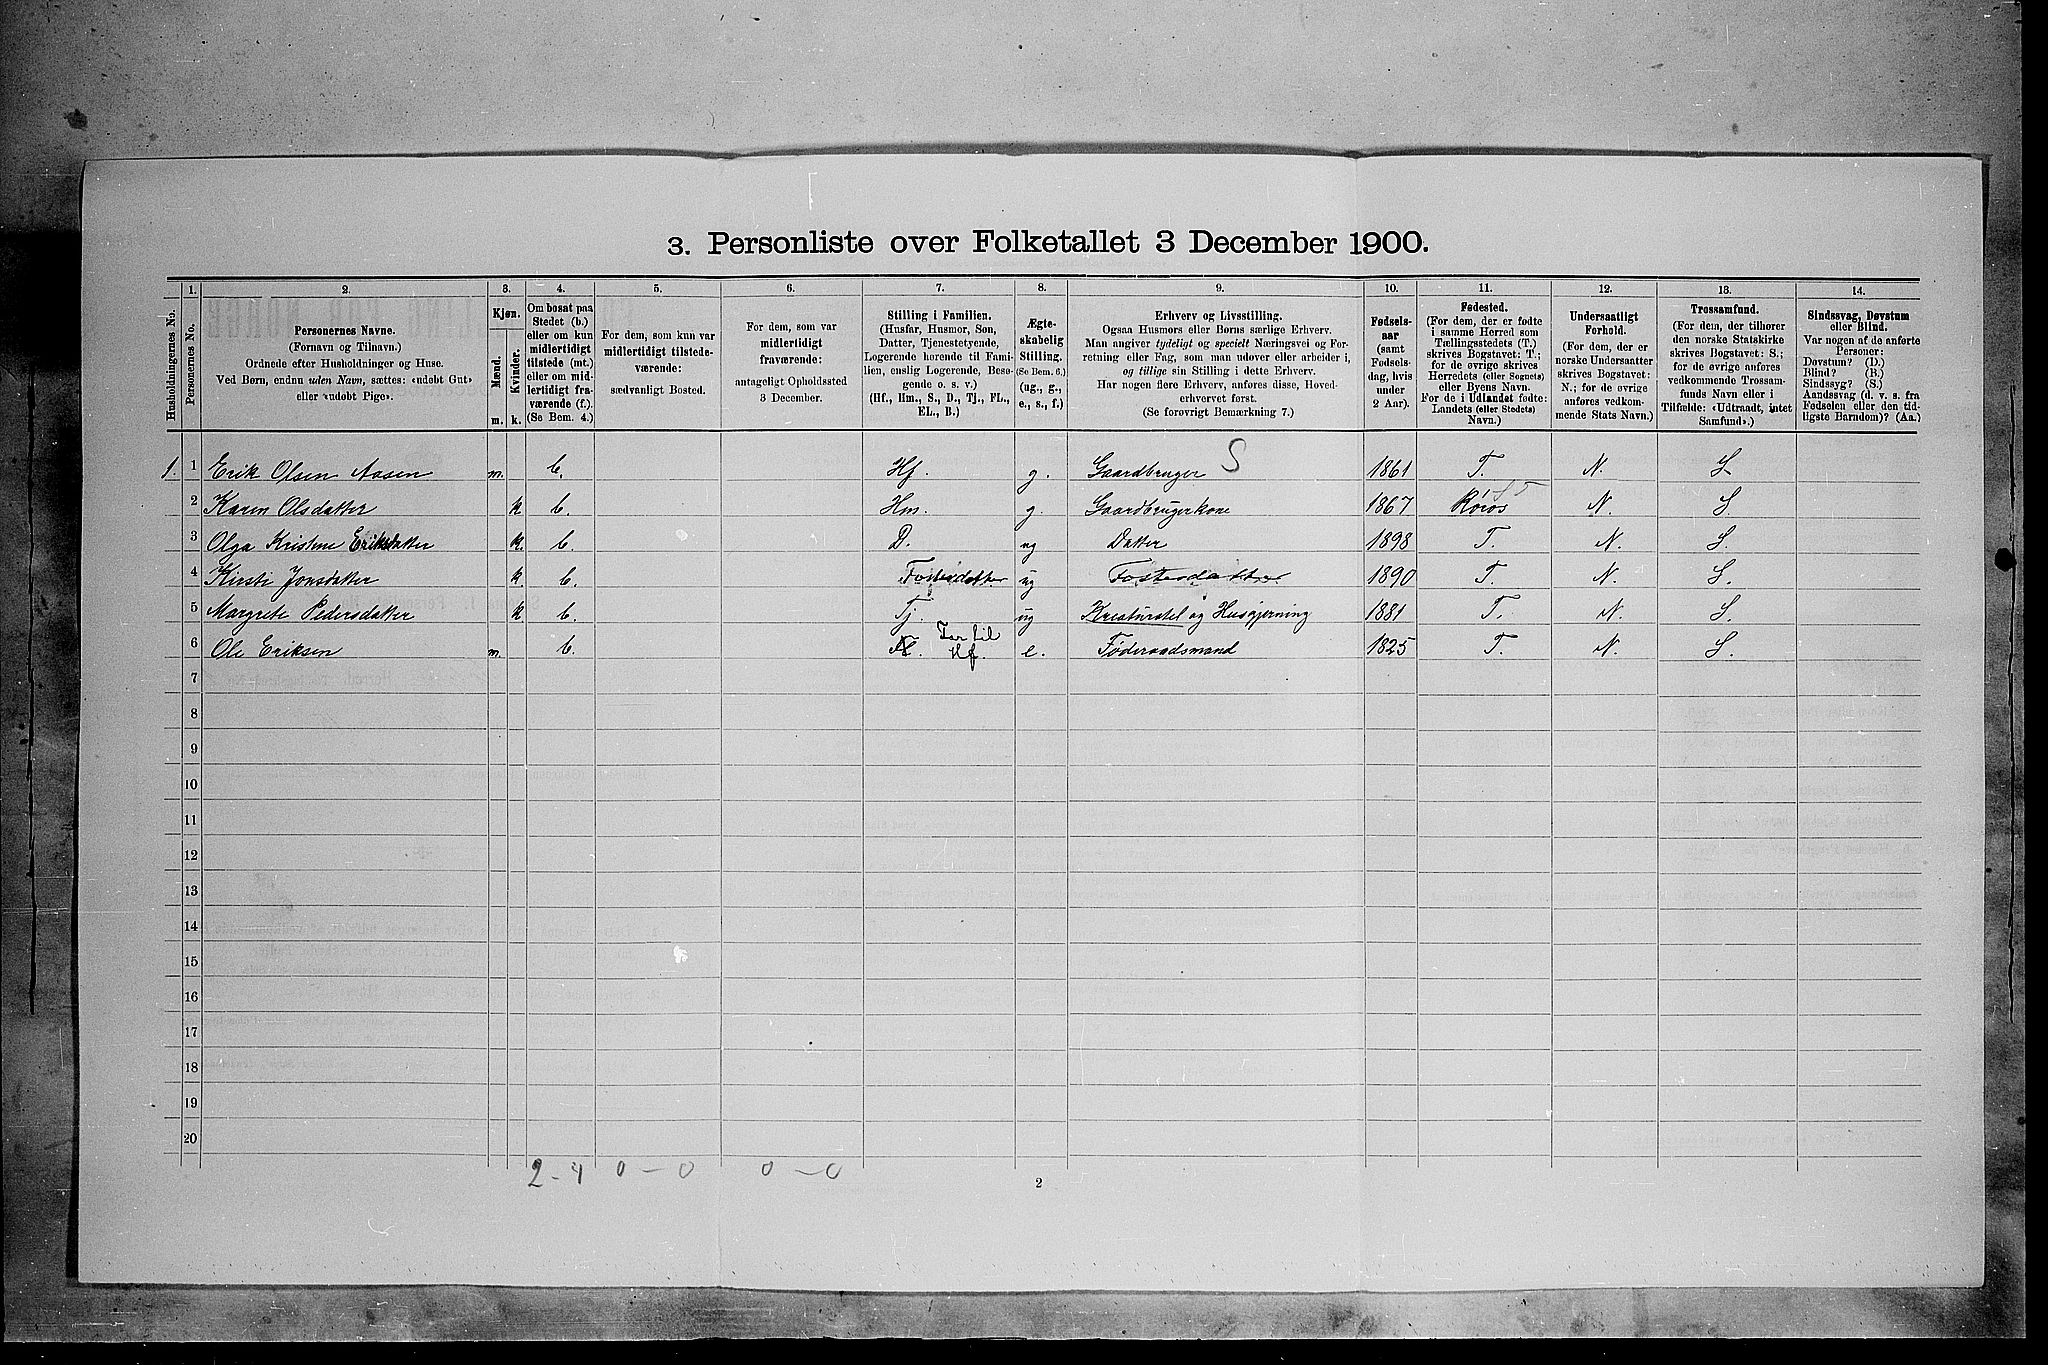 3. Personliste over Folketallet 3 December 1900.
Husholdningernes No.
1.
Personernes No.
2.
Personernes Navne.
(Fornavn og Tilnavn.)
Ordnede efter Husholdninger og Huse.
Ved Børn, endnu uden Navn, sættes: «udøbt Gut»
eller «udøbt Pige».
3.
Kjøn.
Mænd.
Kvinder.
m. k.
4.
Om bosat paa
Stedet (b.)
eller om kun
midlertidigt
tilstede (mt.)
eller om mid-
lertidigt fra-
værende (f.).
(Se Bem. 4.)
5.
For dem, som kun var
midlertidigt tilstede-
værende:
sædvanligt Bosted.
6.
For dem, som var
midlertidigt
fraværende:
antageligt Opholdssted
3 December.
7.
Stilling i Familien.
(Husfar, Husmor, Søn,
Datter, Tjenestetyende,
Logerende hørende til Fami-
lien, enslig Logerende, Besø-
gende o. s. v.)
(Hf., Hm., S., D., Tj., FL.,
EL., B.)
8.
Ægte-
skabelig
Stilling.
(Se Bem. 6.)
(ug., g.,
e., s., f.)
9.
Erhverv og Livsstilling.
Ogsaa Husmors eller Børns særlige Erhverv.
Man angiver tydeligt og specielt Næringsvei og For-
retning eller Fag, som man udøver eller arbeider i,
og tillige sin Stilling i dette Erhverv.
Har nogen flere Erhverv, anføres disse, Hoved-
erhvervet først.
(Se forøvrigt Bemærkning 7.)
10.
Fødsels-
aar
(samt
Fødsels-
dag, hvis
under
2 Aar).
11.
Fødested.
(For dem, der er fødte
i samme Herred som
Tællingsstedets (T.)
skrives Bogstavet: T.;
for de øvrige skrives
Herredets (eller Sognets)
eller Byens Navn.
For de i Udlandet fødte:
Landets (eller Stedets)
Navn.)
12.
Undersaatligt
Forhold.
(For dem, der er
norske Undersaatter
skrives Bogstavet:
N.; for de øvrige
anføres vedkom-
mende Stats Navn.)
13.
Trossamfund.
(For dem, der tilhører
den norske Statskirke
skrives Bogstavet: S.;
for de øvrige anføres
vedkommende Trossam-
funds Navn eller i
Tilfælde: «Udtraadt, intet
Samfund».)
14.
Sindssvag, Døvstum
eller Blind.
Var nogen af de anførte
Personer:
Døvstum? (D.)
Blind? (B.)
Sindssyg? (S.)
Aandssvag (d. v. s. fra
Fødselen eller den tid-
ligste Barndom)? (Aa.)
1. 1 Erik Olsen Aasen m. b. Hf. g. Gaardbruger S 1861 T. N. S.
2 Karen Olsdatter k b. Hm. g. Gaardbrugerkone 1867 Røros N. S.
3 Olga Kristine Eriksdatter k. b. D. ug Datter 1898 T. N. S.
4 Kirsti Jonsdatter k b. Fosterdatter ug Fosterdatter 1890 T. N. S.
5 Margrete Pedersdatter k b. Tj. ug Kreaturstel og Husgjerning 1881 T. N. S.
6 Ole Eriksen m. b. Far til Hf. e. Føderaadsmand 1825 T. N. S.
7
8
9
10
11
12
13
14
15
16
17
18
19
20
2 - 4 0 - 0 0 - 0
2